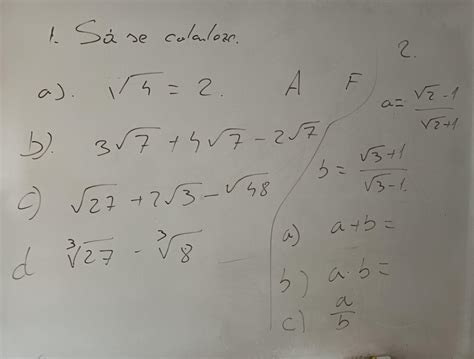 1. Să se calculeze.
a). √4 = 2. A F
b). 3√7 + 4√7 - 2√7
c) √27 + 2√3 - √48
d ∛27 - ∛8
2.
a = (√2 - 1)/(√2 + 1)
b = (√3 + 1)/(√3 - 1.)
a) a + b =
b) a · b =
c) a/b